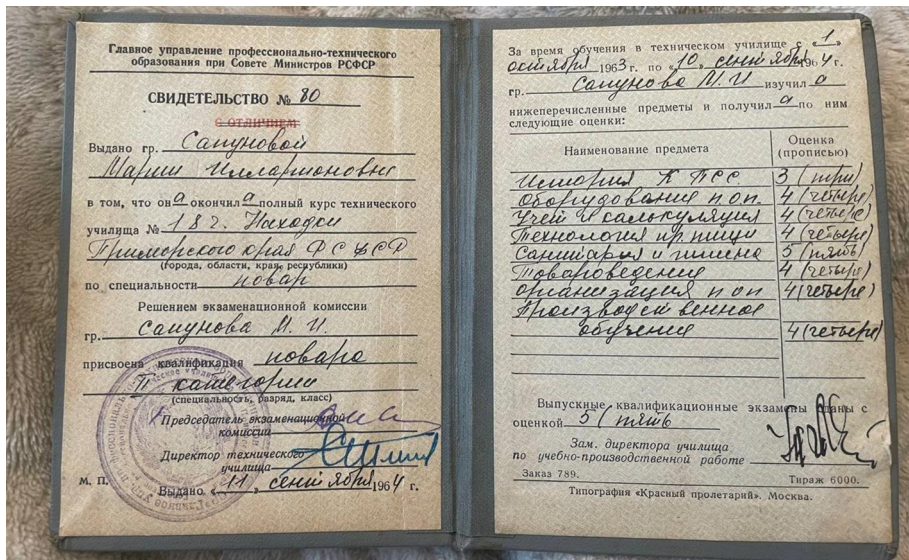 Главное управление профессионально-технического
образования при Совете Министров РСФСР
СВИДЕТЕЛЬСТВО № 80
С ОТЛИЧИЕМ
Выдано гр. Сапуновой
Марии Илларионовне
в том, что она окончила полный курс технического
училища № 18 г. Находки
Приморского края РСФСР
(города, области, края, республики)
по специальности повар
Решением экзаменационной комиссии
гр. Сапунова М. И.
присвоена квалификация повара
II категории
(специальность, разряд, класс)
Председатель экзаменационной
комиссии
Директор технического
училища
М. П.
Выдано «11» сентября 1964 г.
За время обучения в техническом училище с «1»
октября 1963 г. по «10» сентября 1964 г.
гр. Сапунова М. И. изучила
нижеперечисленные предметы и получила по ним
следующие оценки:
Наименование предмета Оценка (прописью)
История КПСС. 3 (три)
Оборудование п.оп. 4 (четыре)
Учет и калькуляция 4 (четыре)
Технология пр. пищи 4 (четыре)
Санитария и гигиена 5 (пять)
Товароведение 4 (четыре)
организация п оп 4 (четыре)
Производственное
обучение 4 (четыре)
Выпускные квалификационные экзамены сданы с
оценкой 5 (пять
Зам. директора училища
по учебно-производственной работе
Заказ 789. Тираж 6000.
Типография «Красный пролетарий». Москва.